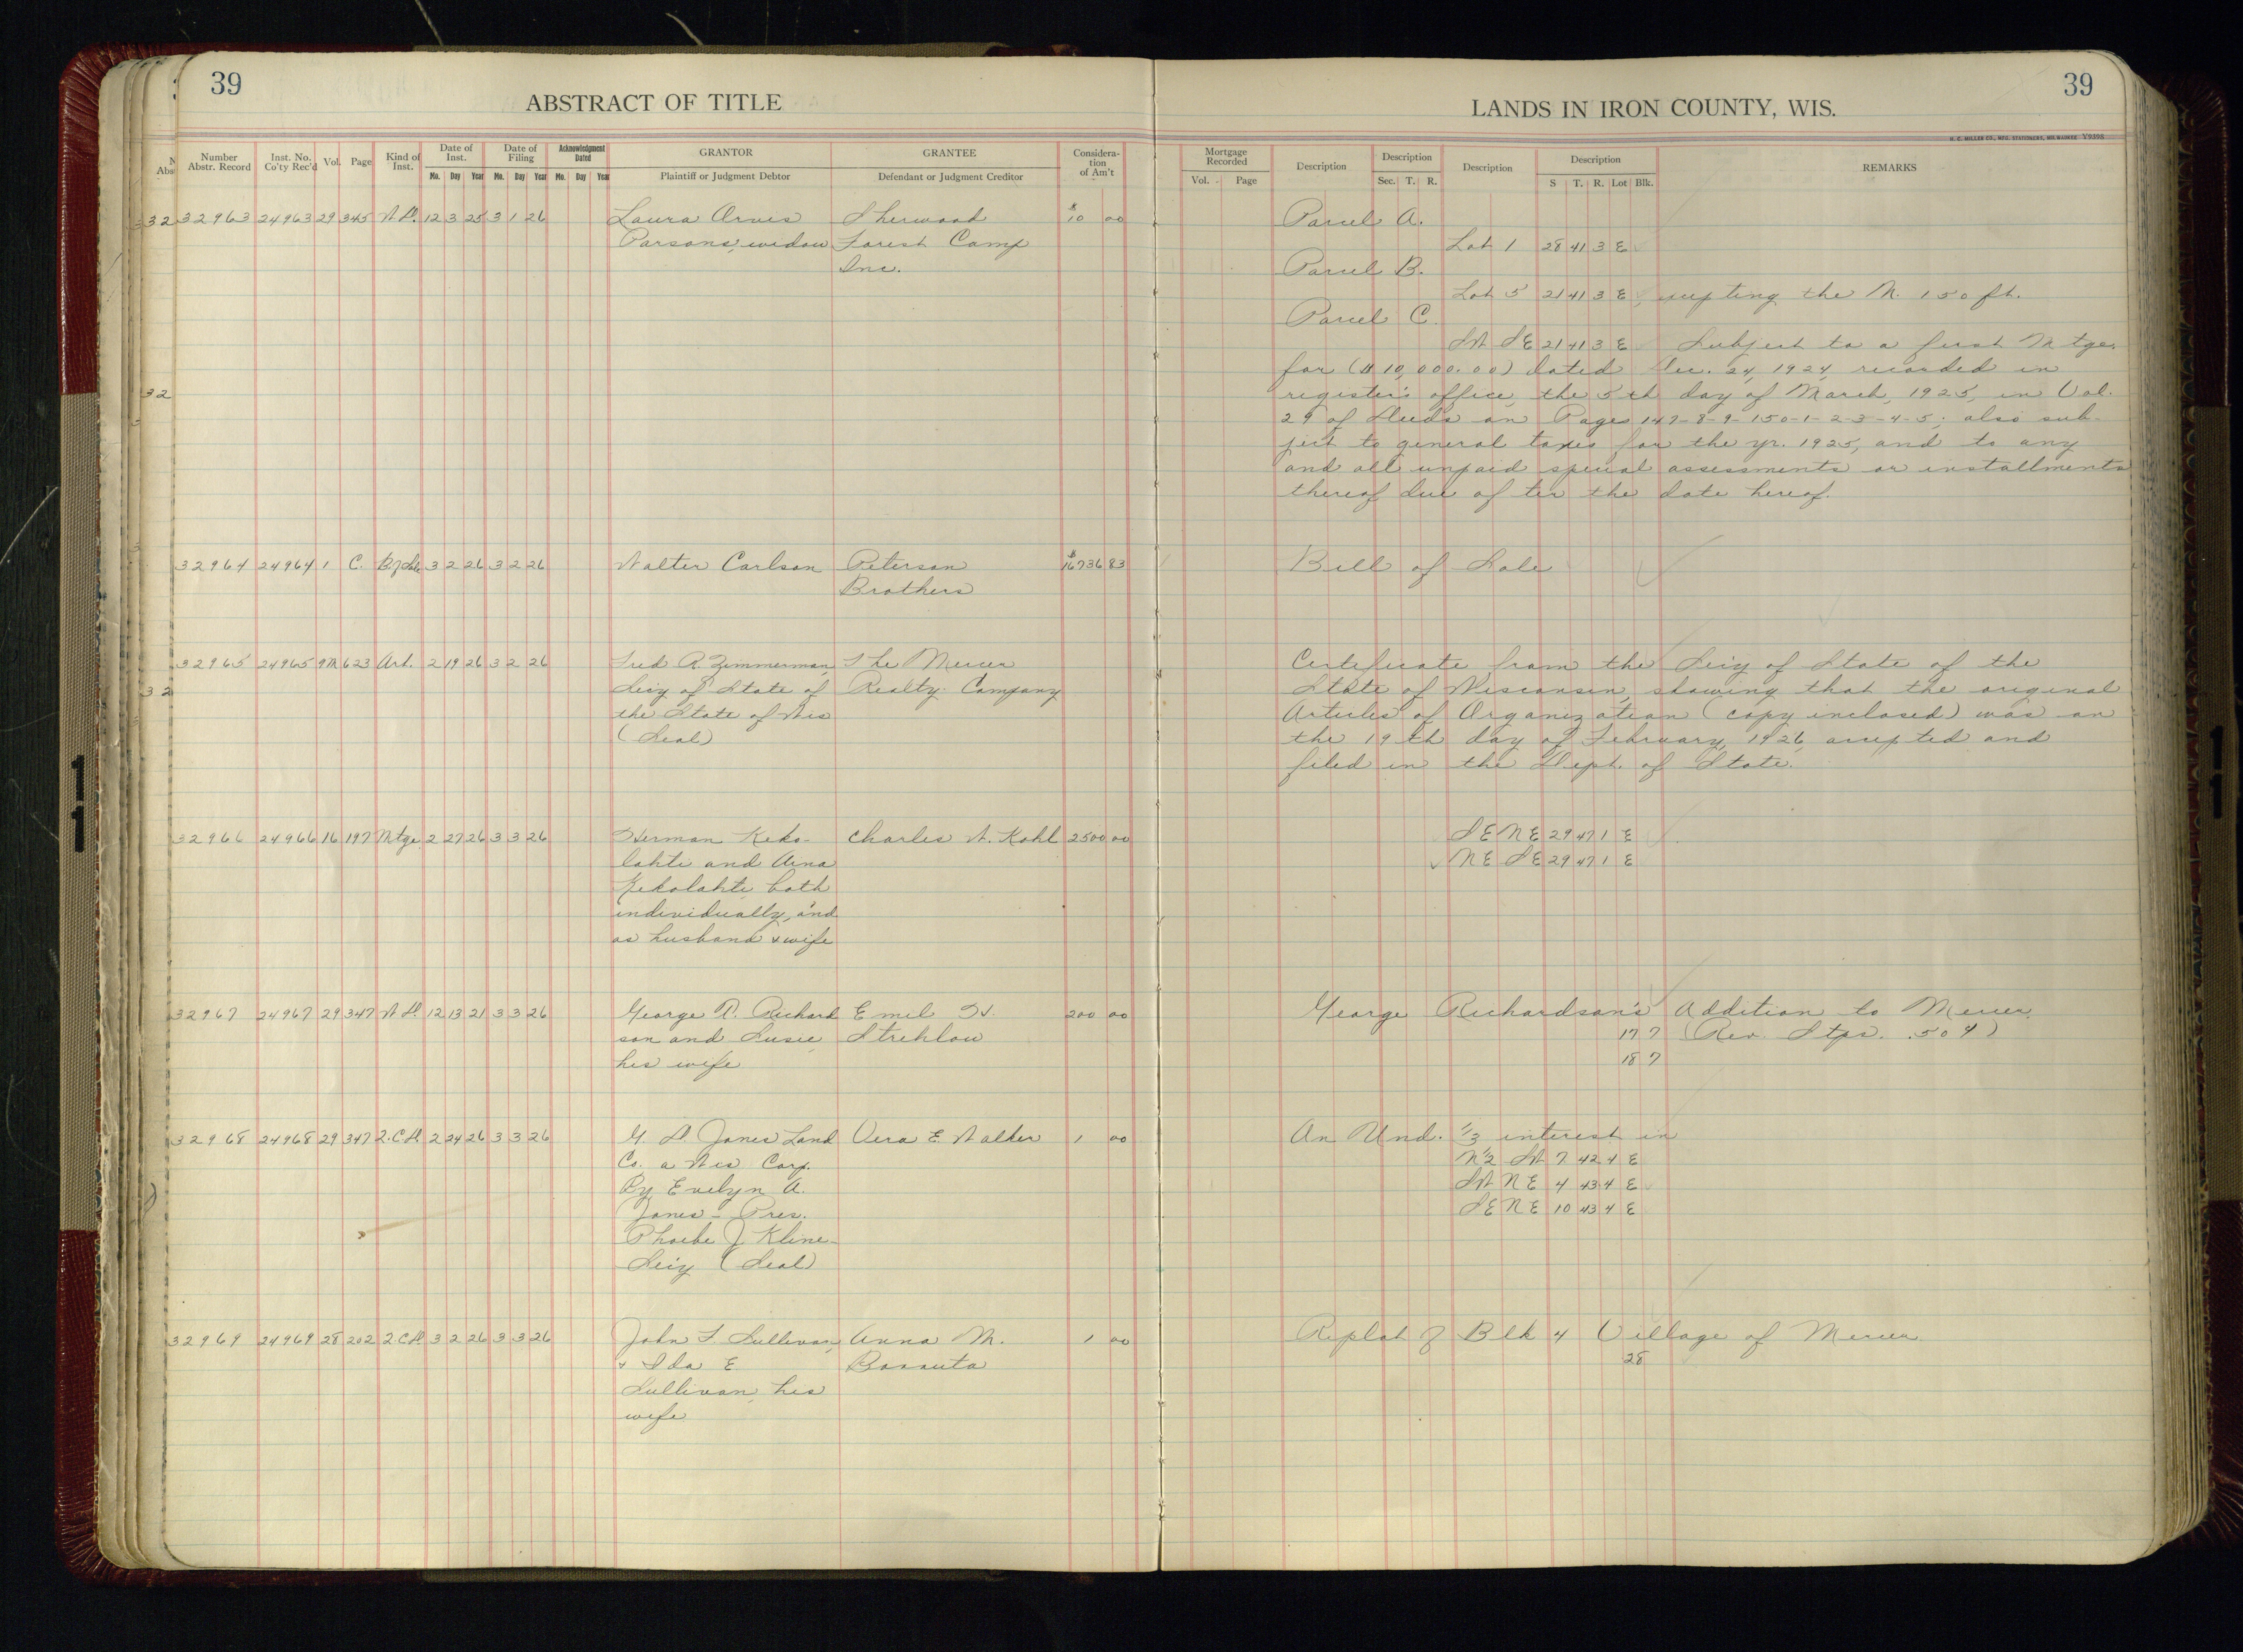 39
ABSTRACT OF TITLE
Number Abstr. Record
Inst. No. Co'ty Rec'd
Vol.
Page
Kind of Inst.
Date of Inst.
Mo. Day Year
Date of Filing
Mo. Day Year
Acknowledgment Dated
Mo. Day Year
GRANTOR
Plaintiff or Judgment Debtor
GRANTEE
Defendant or Judgment Creditor
Considera-
tion
of Am't
32963 24963 29 345 W.D. 12 3 25 3 1 26 Laura Orvis Sherwood $10 00
Parsons, widow Forest Camp
Inc.
32964 24964 1 C. B. of Sale 3 2 26 3 2 26 Walter Carlson Peterson $16736 83
Brothers
32965 24965 9M 623 Art. 2 19 26 3 2 26 Fred R. Zimmerman, The Mercer
Sec'y of State of Realty Company
the State of Wis
(Seal)
32966 24966 16 197 Mtge 2 27 26 3 3 26 Herman Keko- Charles W. Kohl 2500 00
lahti and Aina
Kekolahti, both
individually, and
as husband & wife
32967 24967 29 347 W.D. 12 13 21 3 3 26 George R. Richard Emil H. 200 00
son and Susie, Strehlow
his wife
32968 24968 29 347 2.C.D. 2 24 26 3 3 26 G. W. Jones Land Vera E. Walker 1 00
Co. a Wis Corp.
By Evelyn A.
Jones - Pres.
Phoebe J Kline -
Sec'y (Seal)
32969 24969 28 202 2.C.D. 3 2 26 3 3 26 John F. Sullivan, Anna M. 1 00
& Ida E
Sullivan, his
wife
39
LANDS IN IRON COUNTY, WIS.
H. C. MILLER CO., MFG. STATIONERS, MILWAUKEE Y9398
Mortgage Recorded
Vol. Page
Description
Description
Sec. T. R.
Description
Description
S T. R. Lot Blk.
REMARKS
Parcel A.
Lot 1 28 41 3 E
Parcel B.
Lot 5 21 41 3 E, excepting the N. 150 ft.
Parcel C.
SW SE 21 41 3 E Subject to a first Mtge.
for ($10,000.00) dated Dec. 24, 1924, recorded in
register's office, the 5th day of March, 1925, in Vol.
29 of Deeds on Pages 147-8-9-150-1-2-3-4-5; also sub-
ject to general taxes for the yr. 1925, and to any
and all unpaid special assessments or installments
thereof due after the date hereof.
Bill of Sale
Certificate from the Sec'y of State of the
State of Wisconsin, showing that the original
Articles of Organization (copy inclosed) was on
the 19th day of February, 1926, accepted and
filed in the Dept. of State.
SE NE 29 47 1 E
NE SE 29 47 1 E
George Richardson's Addition to Mercer.
17 7 (Rev. Stps. .50 ¢)
18 7
An Und. 1/3 interest in
N½ SW 7 42 4 E
SW NE 4 43 4 E
SE NE 10 43 4 E
Replat of Blk 4 Village of Mercer
28